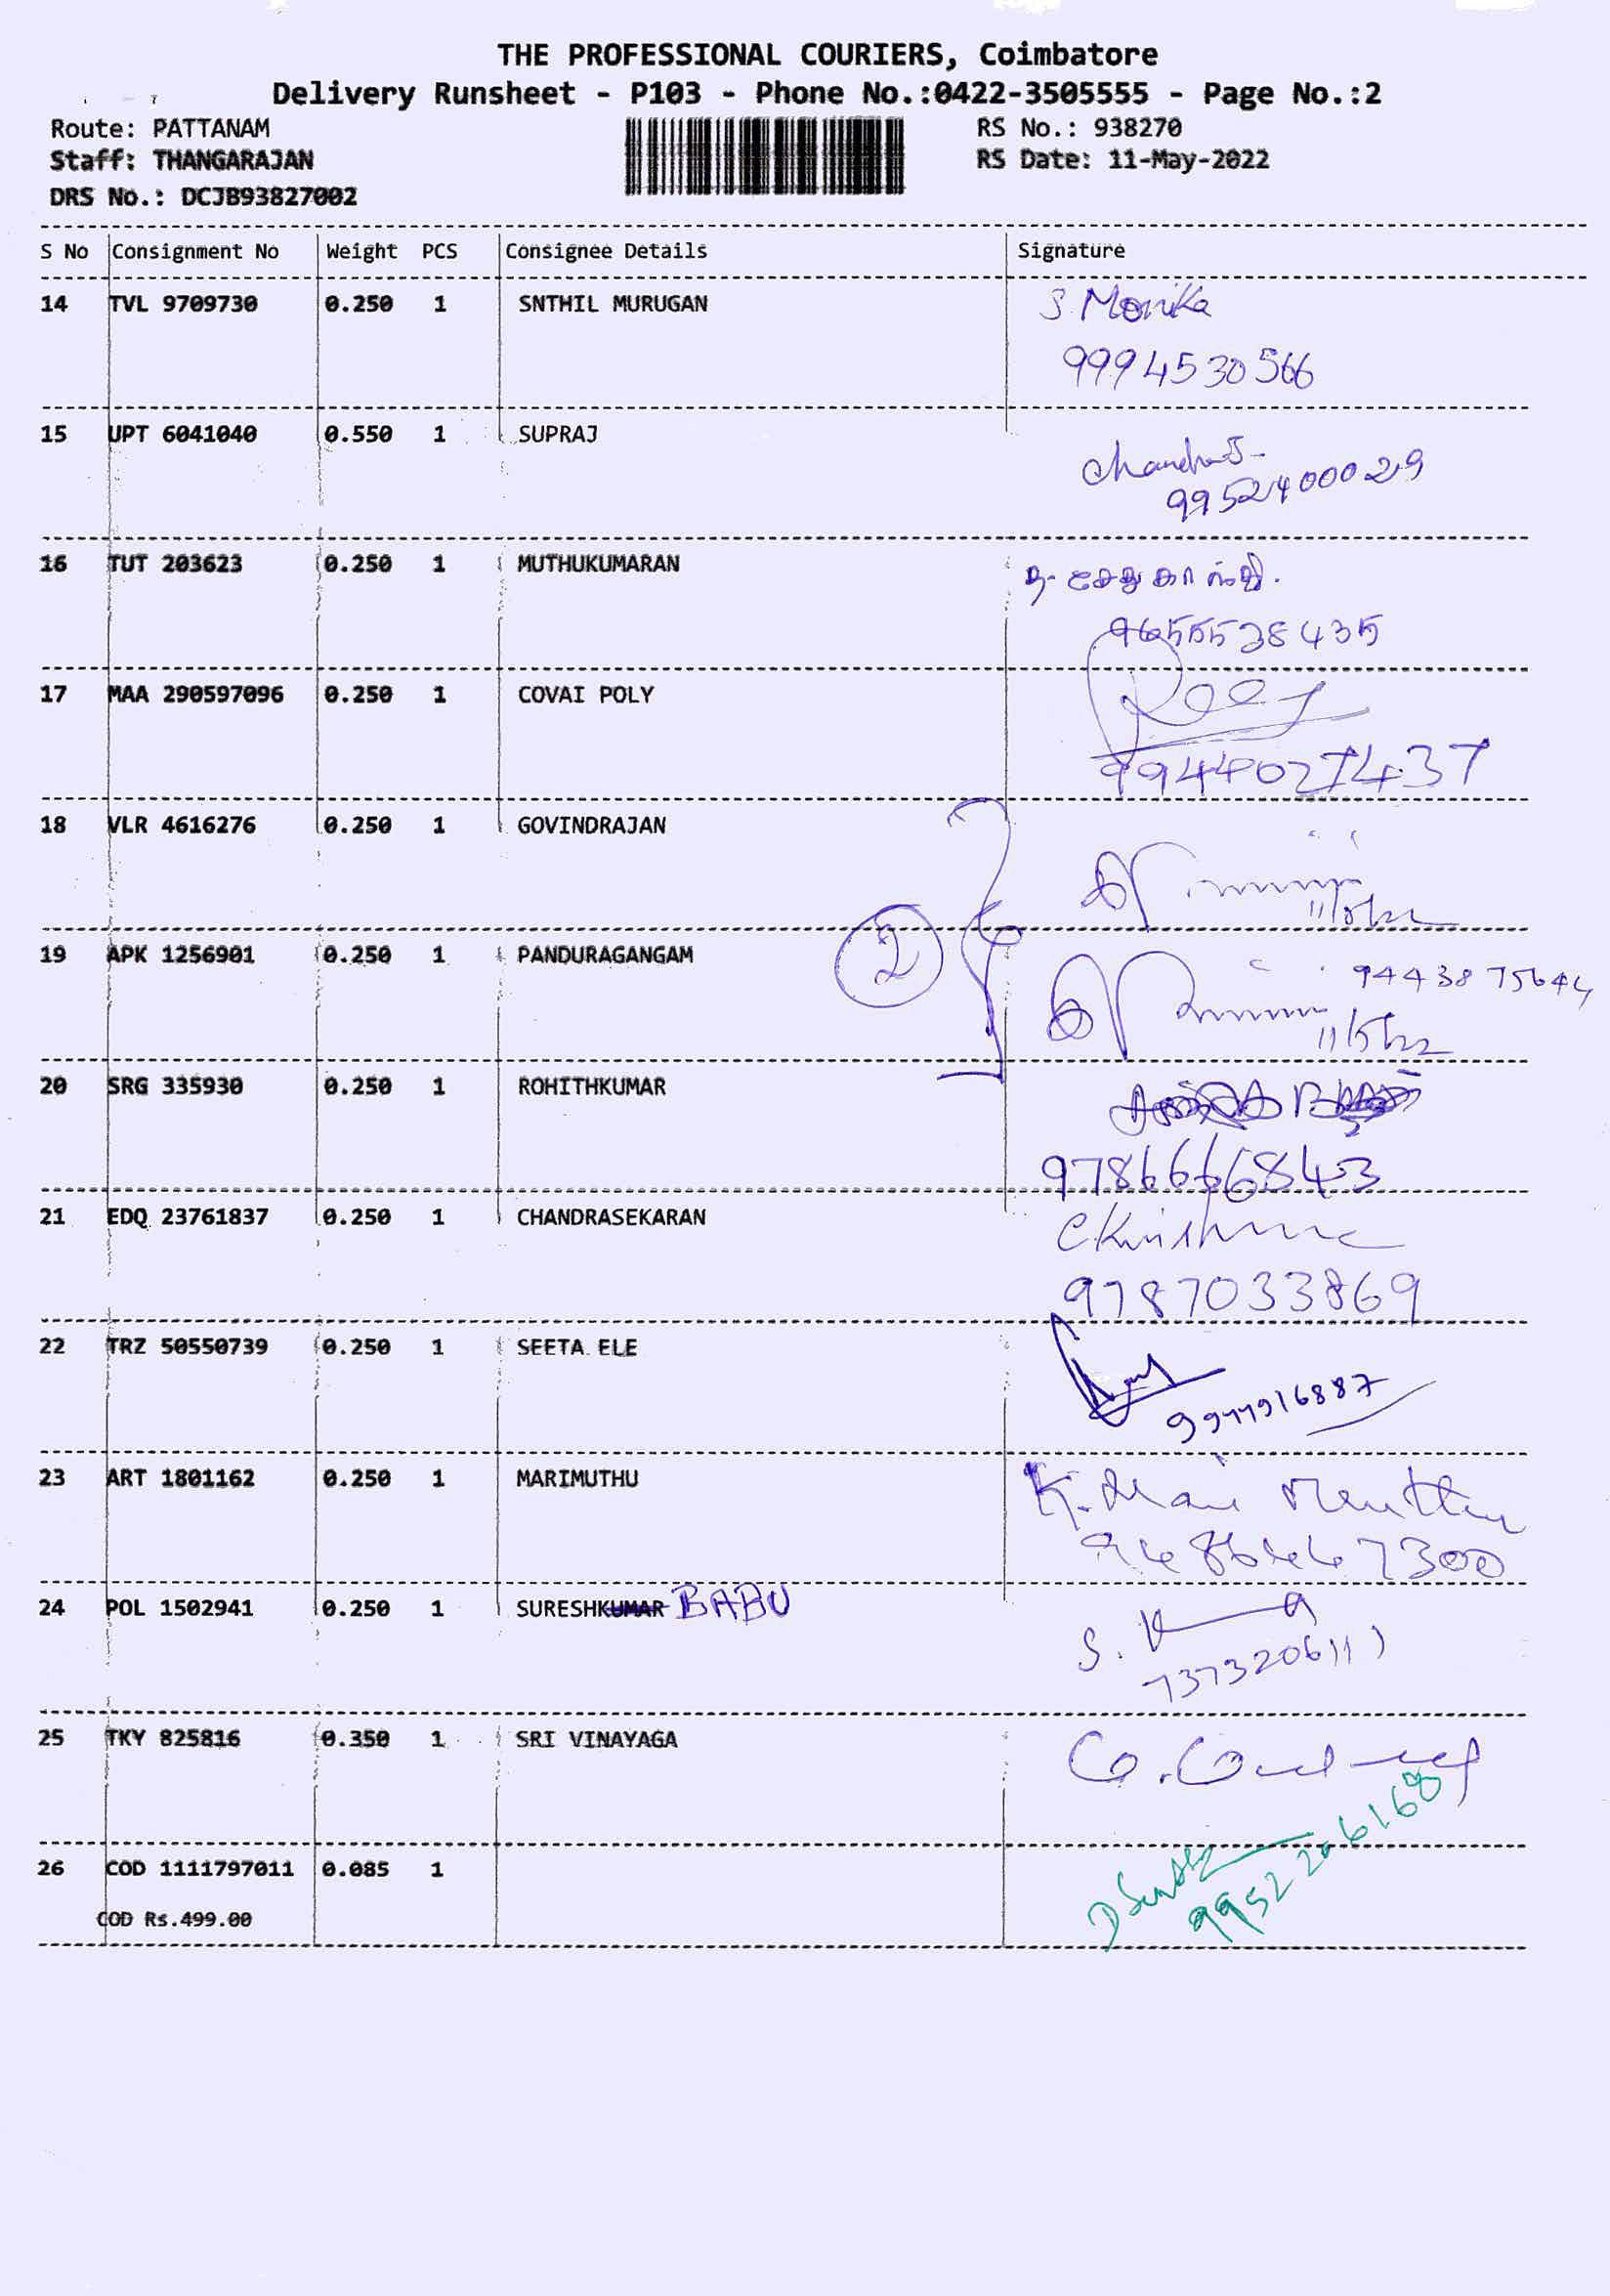 THE PROFESSIONAL COURIERS, Coimbatore
Delivery Runsheet - P103 - Phone No.:0422-3505555 - Page No.:2
Route: PATTANAM
RS No.: 938270
Staff: THANGARAJAN
RS Date: 11-May-2022
DRS No.: DCJB93827002
S No Consignment No Weight PCS Consignee Details Signature
14 TVL 9709730 0.250 1 SNTHIL MURUGAN S. Monika
9994530566
15 UPT 6041040 0.550 1 SUPRAJ
9952400029
16 TUT 203623 0.250 1 MUTHUKUMARAN
9655538435
17 MAA 290597096 0.250 1 COVAI POLY
9944027437
18 VLR 4616276 0.250 1 GOVINDRAJAN
11/5/22
2
19 APK 1256901 0.250 1 PANDURAGANGAM 9443875644
11/5/22
20 SRG 335930 0.250 1 ROHITHKUMAR
9786666843
21 EDQ 23761837 0.250 1 CHANDRASEKARAN C Krishna
9787033869
22 TRZ 50550739 0.250 1 SEETA ELE
23 ART 1801162 0.250 1 MARIMUTHU K. Mari Muthu
9486447300
24 POL 1502941 0.250 1 SURESHKUMAR BABU
7373206111
25 TKY 825816 0.350 1 SRI VINAYAGA
26 COD 1111797011 0.085 1
9952206168
COD Rs.499.00